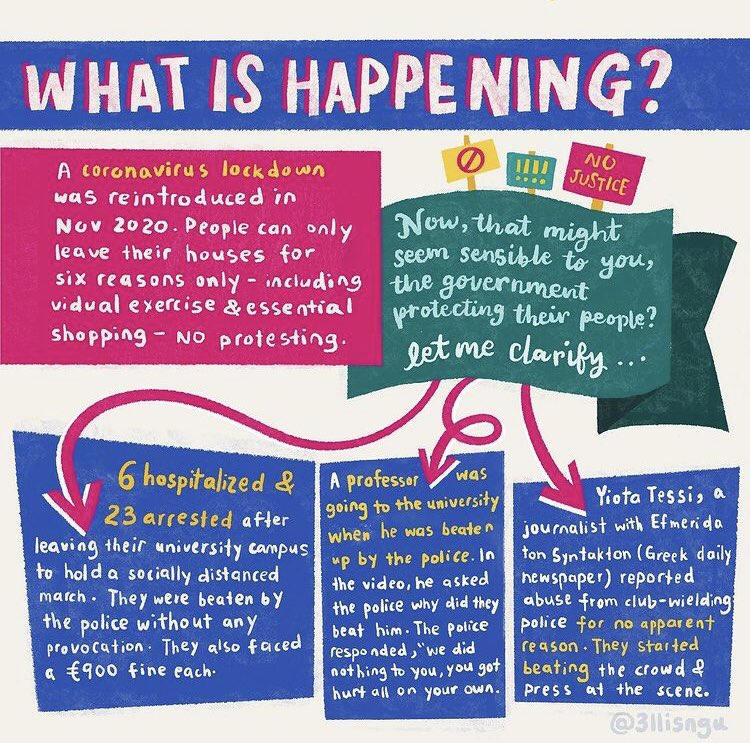 WHAT IS HAPPENING?
A coronavirus lockdown
was reintroduced in
Nov 2020. People can only
leave their houses for
six reasons only - including
vidual exercise & essential
shopping - NO protesting.
!!!!
NO
JUSTICE
Now, that might
seem sensible to you,
the government
protecting their people?
let me clarify ...
6 hospitalized &
23 arrested after
leaving their university campus
to hold a socially distanced
march. They were beaten by
the police without any
provocation. They also faced
a €900 fine each.
A professor was
going to the university
when he was beaten
up by the police. In
the video, he asked
the police why did they
beat him. The police
responded, "we did
nothing to you, you got
hurt all on your own.
Yiota Tessi, a
journalist with Efmerida
ton Syntakton (Greek daily
newspaper) reported
abuse from club-wielding
police for no apparent
reason. They started
beating the crowd &
press at the scene.
@3llisngu